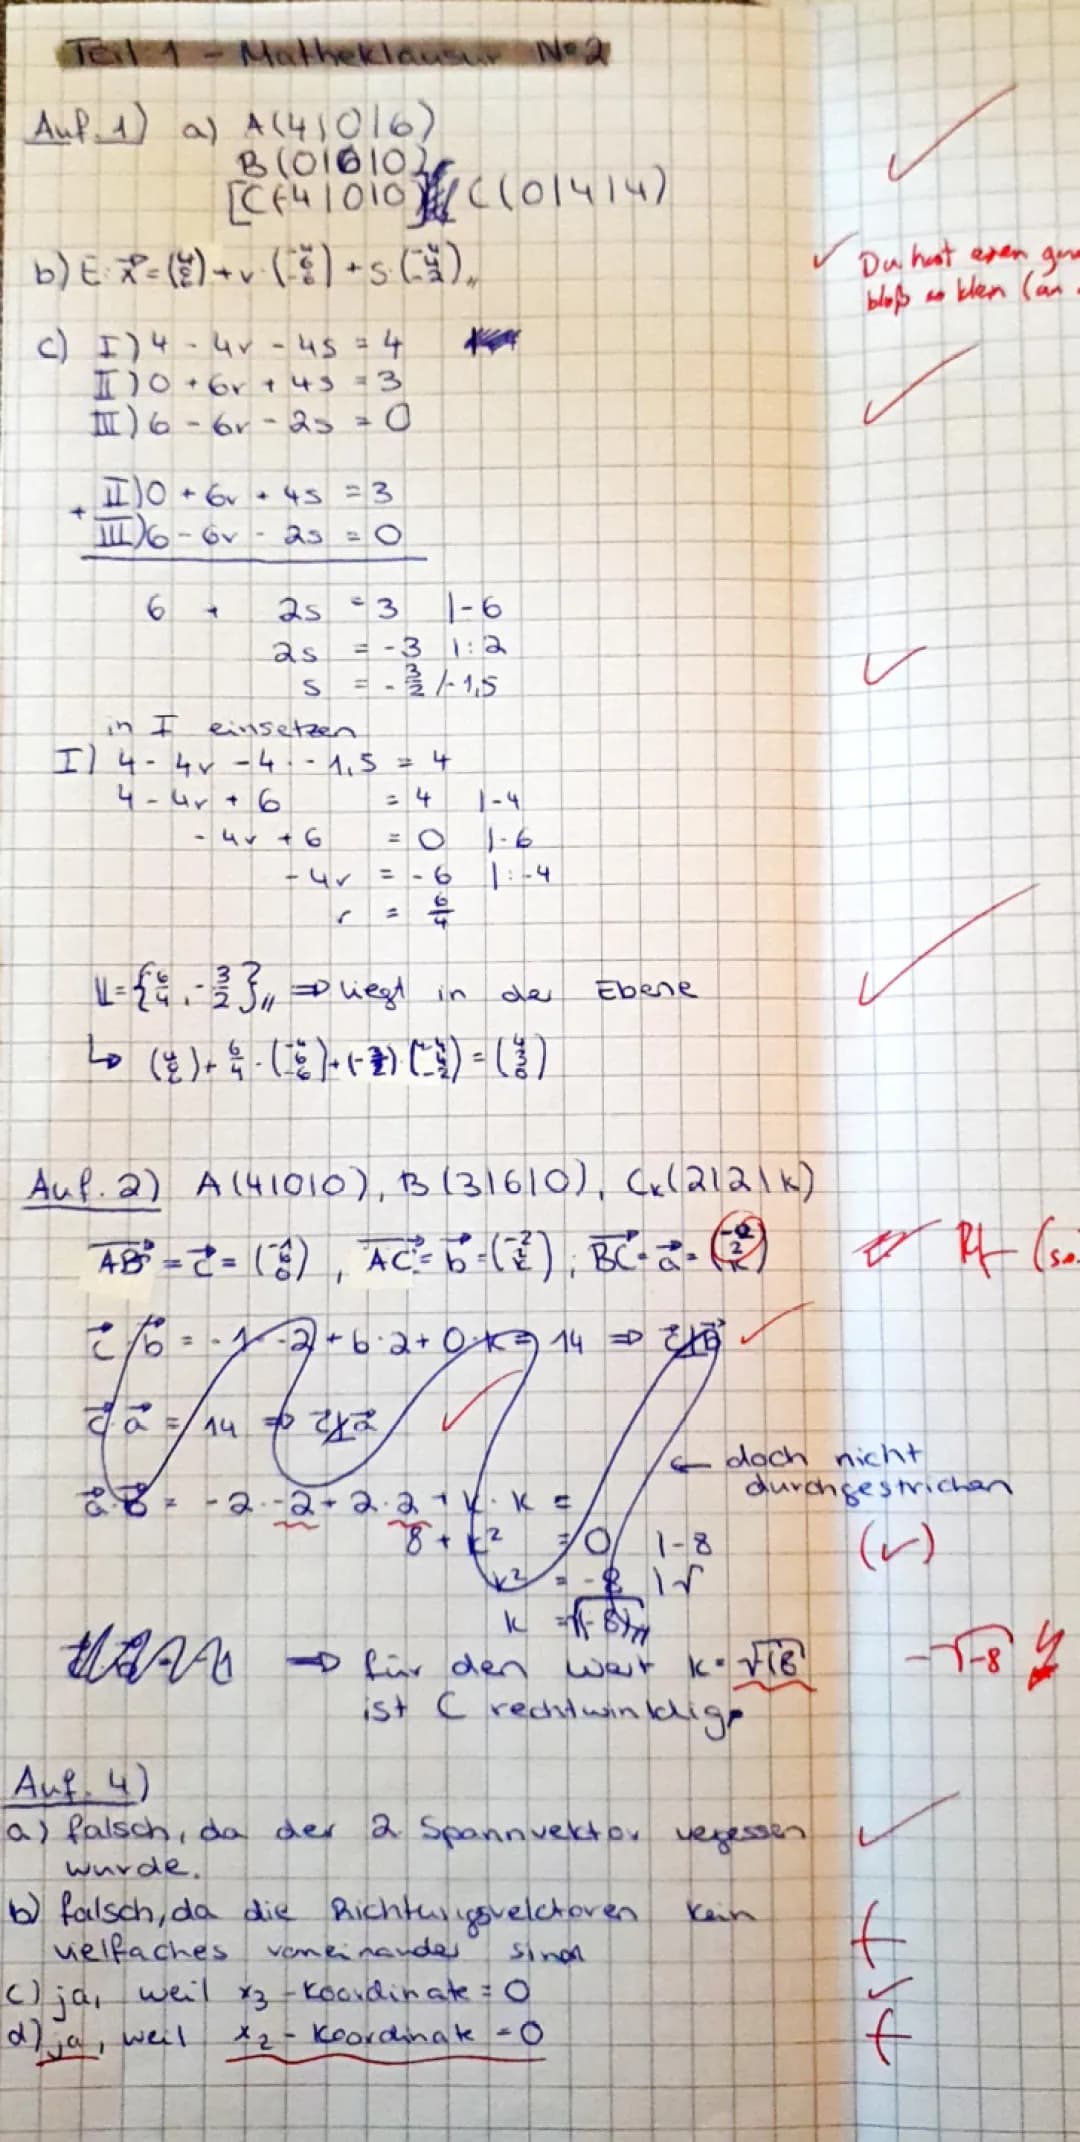 Teil 1 - Matheklausur No 2
Auf. 1) a) A(4|0|6)
B(0|6|0)
[C(-4|0|0)] C(0|4|4)
b) E: x⃗ = (4 0 6) + r · (-4 6 -6) + s · (-4 4 -2) //
✓ Du hast einen
bloß so klein (an
c) I) 4 - 4r - 4s = 4
II) 0 + 6r + 4s = 3
III) 6 - 6r - 2s = 0
+ II) 0 + 6r + 4s = 3
III) 6 - 6r - 2s = 0
6 + 2s = 3 |-6
2s = -3 |:2
s = -3/2 / -1,5
in I einsetzen
I) 4 - 4r - 4 · -1,5 = 4
4 - 4r + 6 = 4 |-4
- 4r + 6 = 0 |-6
- 4r = -6 |:-4
r = 6/4
𝕃 = {6/4, -3/2} // ⇒ liegt in der Ebene
↳ (4 0 6) + 6/4 · (-4 6 -6) + (-3/2) · (-4 4 -2) = (4 3 0)
Auf. 2) A(4|0|0), B(3|6|0), Cₖ(2|2|k)
AB⃗ = c⃗ = (-1 6 0), AC⃗ = b⃗ = (-2 2 k), BC⃗ = a⃗ = (-2 2 k) Rf
c⃗ · b⃗ = -1 · -2 + 6 · 2 + 0 · k = 14 ⇒ c⃗ ⊥̸ b⃗ ✓
c⃗ · a⃗ = 14 ⇒ c⃗ ⊥̸ a⃗ ✓
← doch nicht
durchgestrichen
a⃗ · b⃗ = -2 · -2 + 2 · 2 + k · k =
8 + k² = 0 |-8 (✓)
k² = -8 |√
k = √(-8) //
⇒ für den Wert k = √(8) -√-8
ist C rechtwinklig
Auf. 4)
a) falsch, da der 2 Spannvektor vergessen ✓
wurde.
b) falsch, da die Richtungsvektoren kein f
vielfaches voneinander sind
c) ja, weil x₃-Koordinate = 0 ✓
d) ja, weil x₂-Koordinate = 0 f